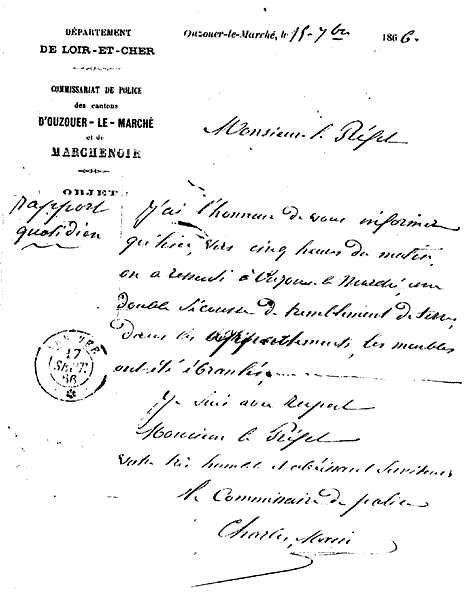 DÉPARTEMENT
DE LOIR-ET-CHER
COMMISSARIAT DE POLICE
des cantons
D'OUZOUER-LE-MARCHÉ
et de
MARCHENOIR
OBJET
Rapport
quotidien
Ouzouer-le-Marché, le 15 7bre 1866.
Monsieur le Préfet
J'ai l'honneur de vous informer
qu'hier, vers cinq heures du matin,
on a ressenti à Ouzouer le Marché, une
double secousse de tremblement de terre,
dans les appartements, les meubles
ont été ébranlés,
Je suis avec respect
Monsieur le Préfet
votre très humble et obéissant serviteur
le Commissaire de police
Charles
17
SEPT.
66